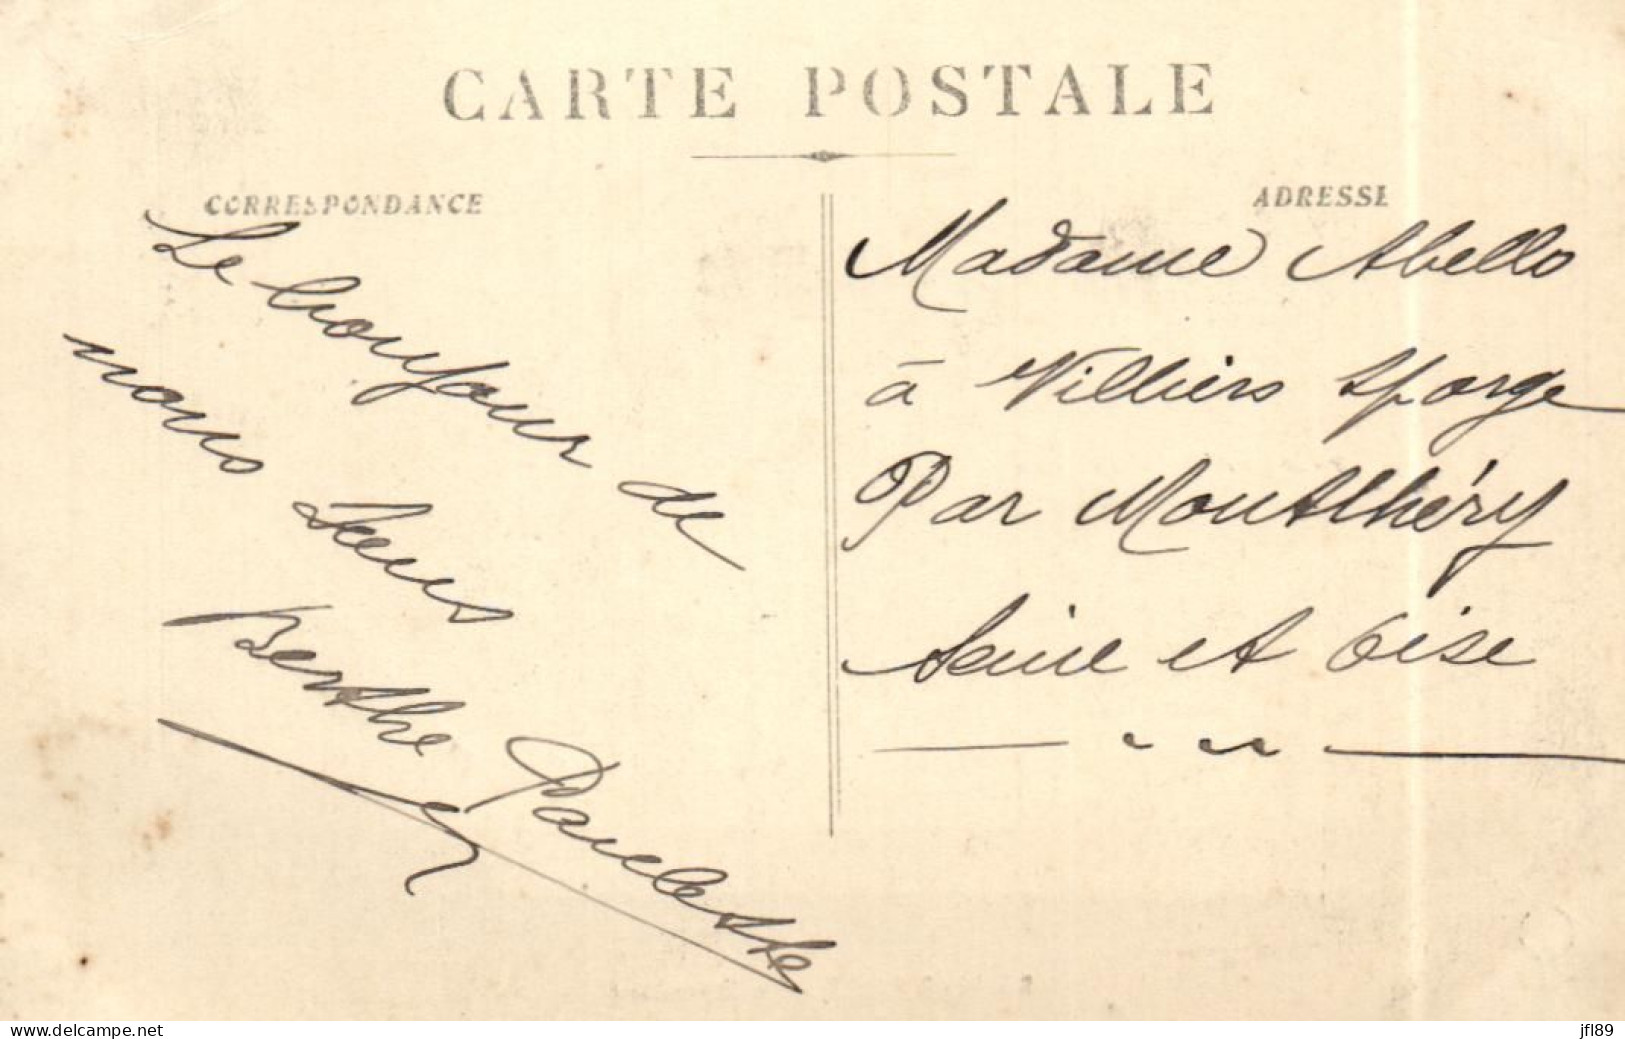 CARTE POSTALE
CORRESPONDANCE
Le bonjour de
nous deux
Berthe
ADRESSE
Madame Abello
à Villiers s/orge
Par Montlhéry
Seine et Oise
www.delcampe.net
jfl89